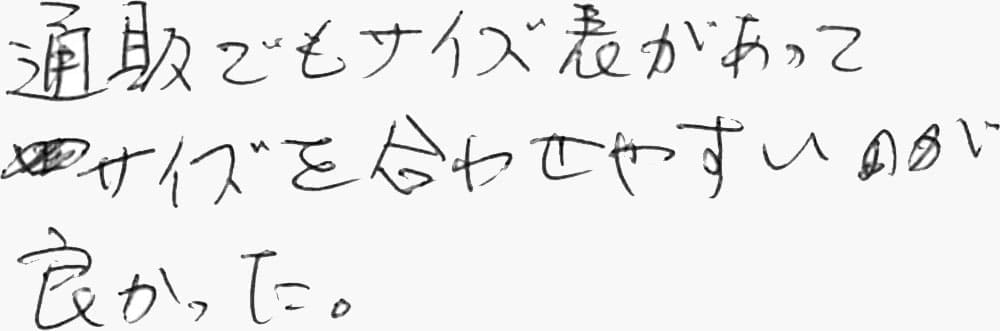 通販でもサイズ表があって
サイズを合わせやすいのが
良かった。